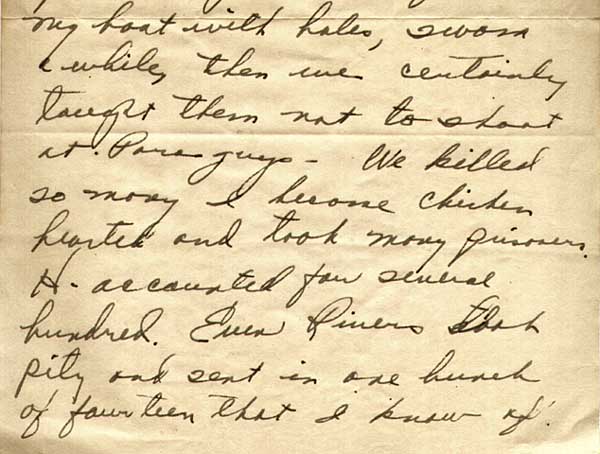 my boat with holes, swam
a while, then we certainly
taught them not to shoot
at Para guys - We killed
so many I become chicken
hearted and took many prisoners.
H- accounted for several
hundred. Even Rivers took
pity and sent in one bunch
of fourteen that I know of.